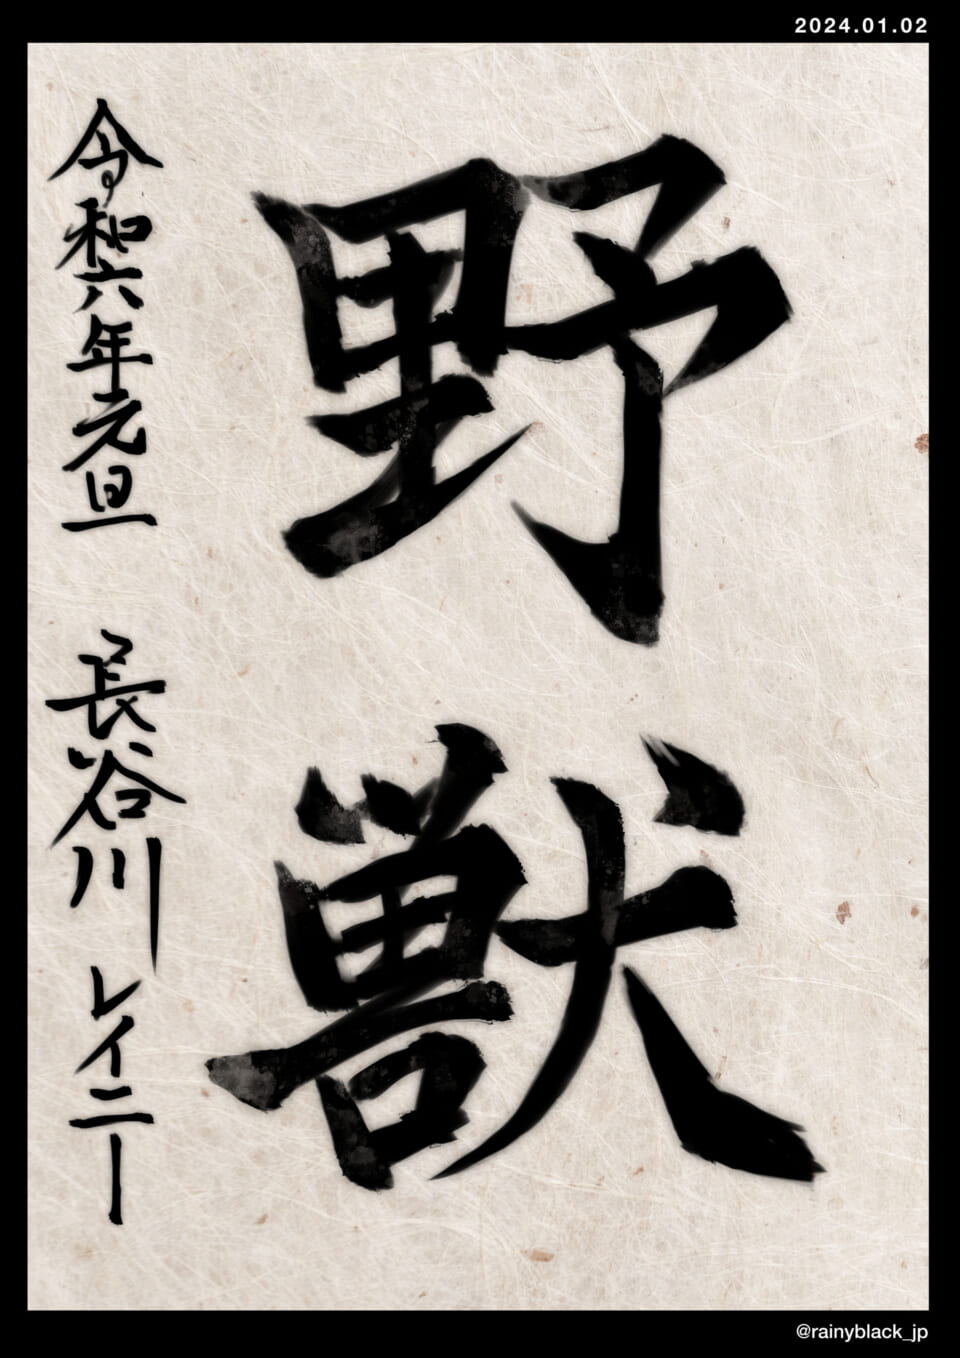 2024.01.02
野獣
令和六年元旦 長谷川レイニー
@rainyblack_jp